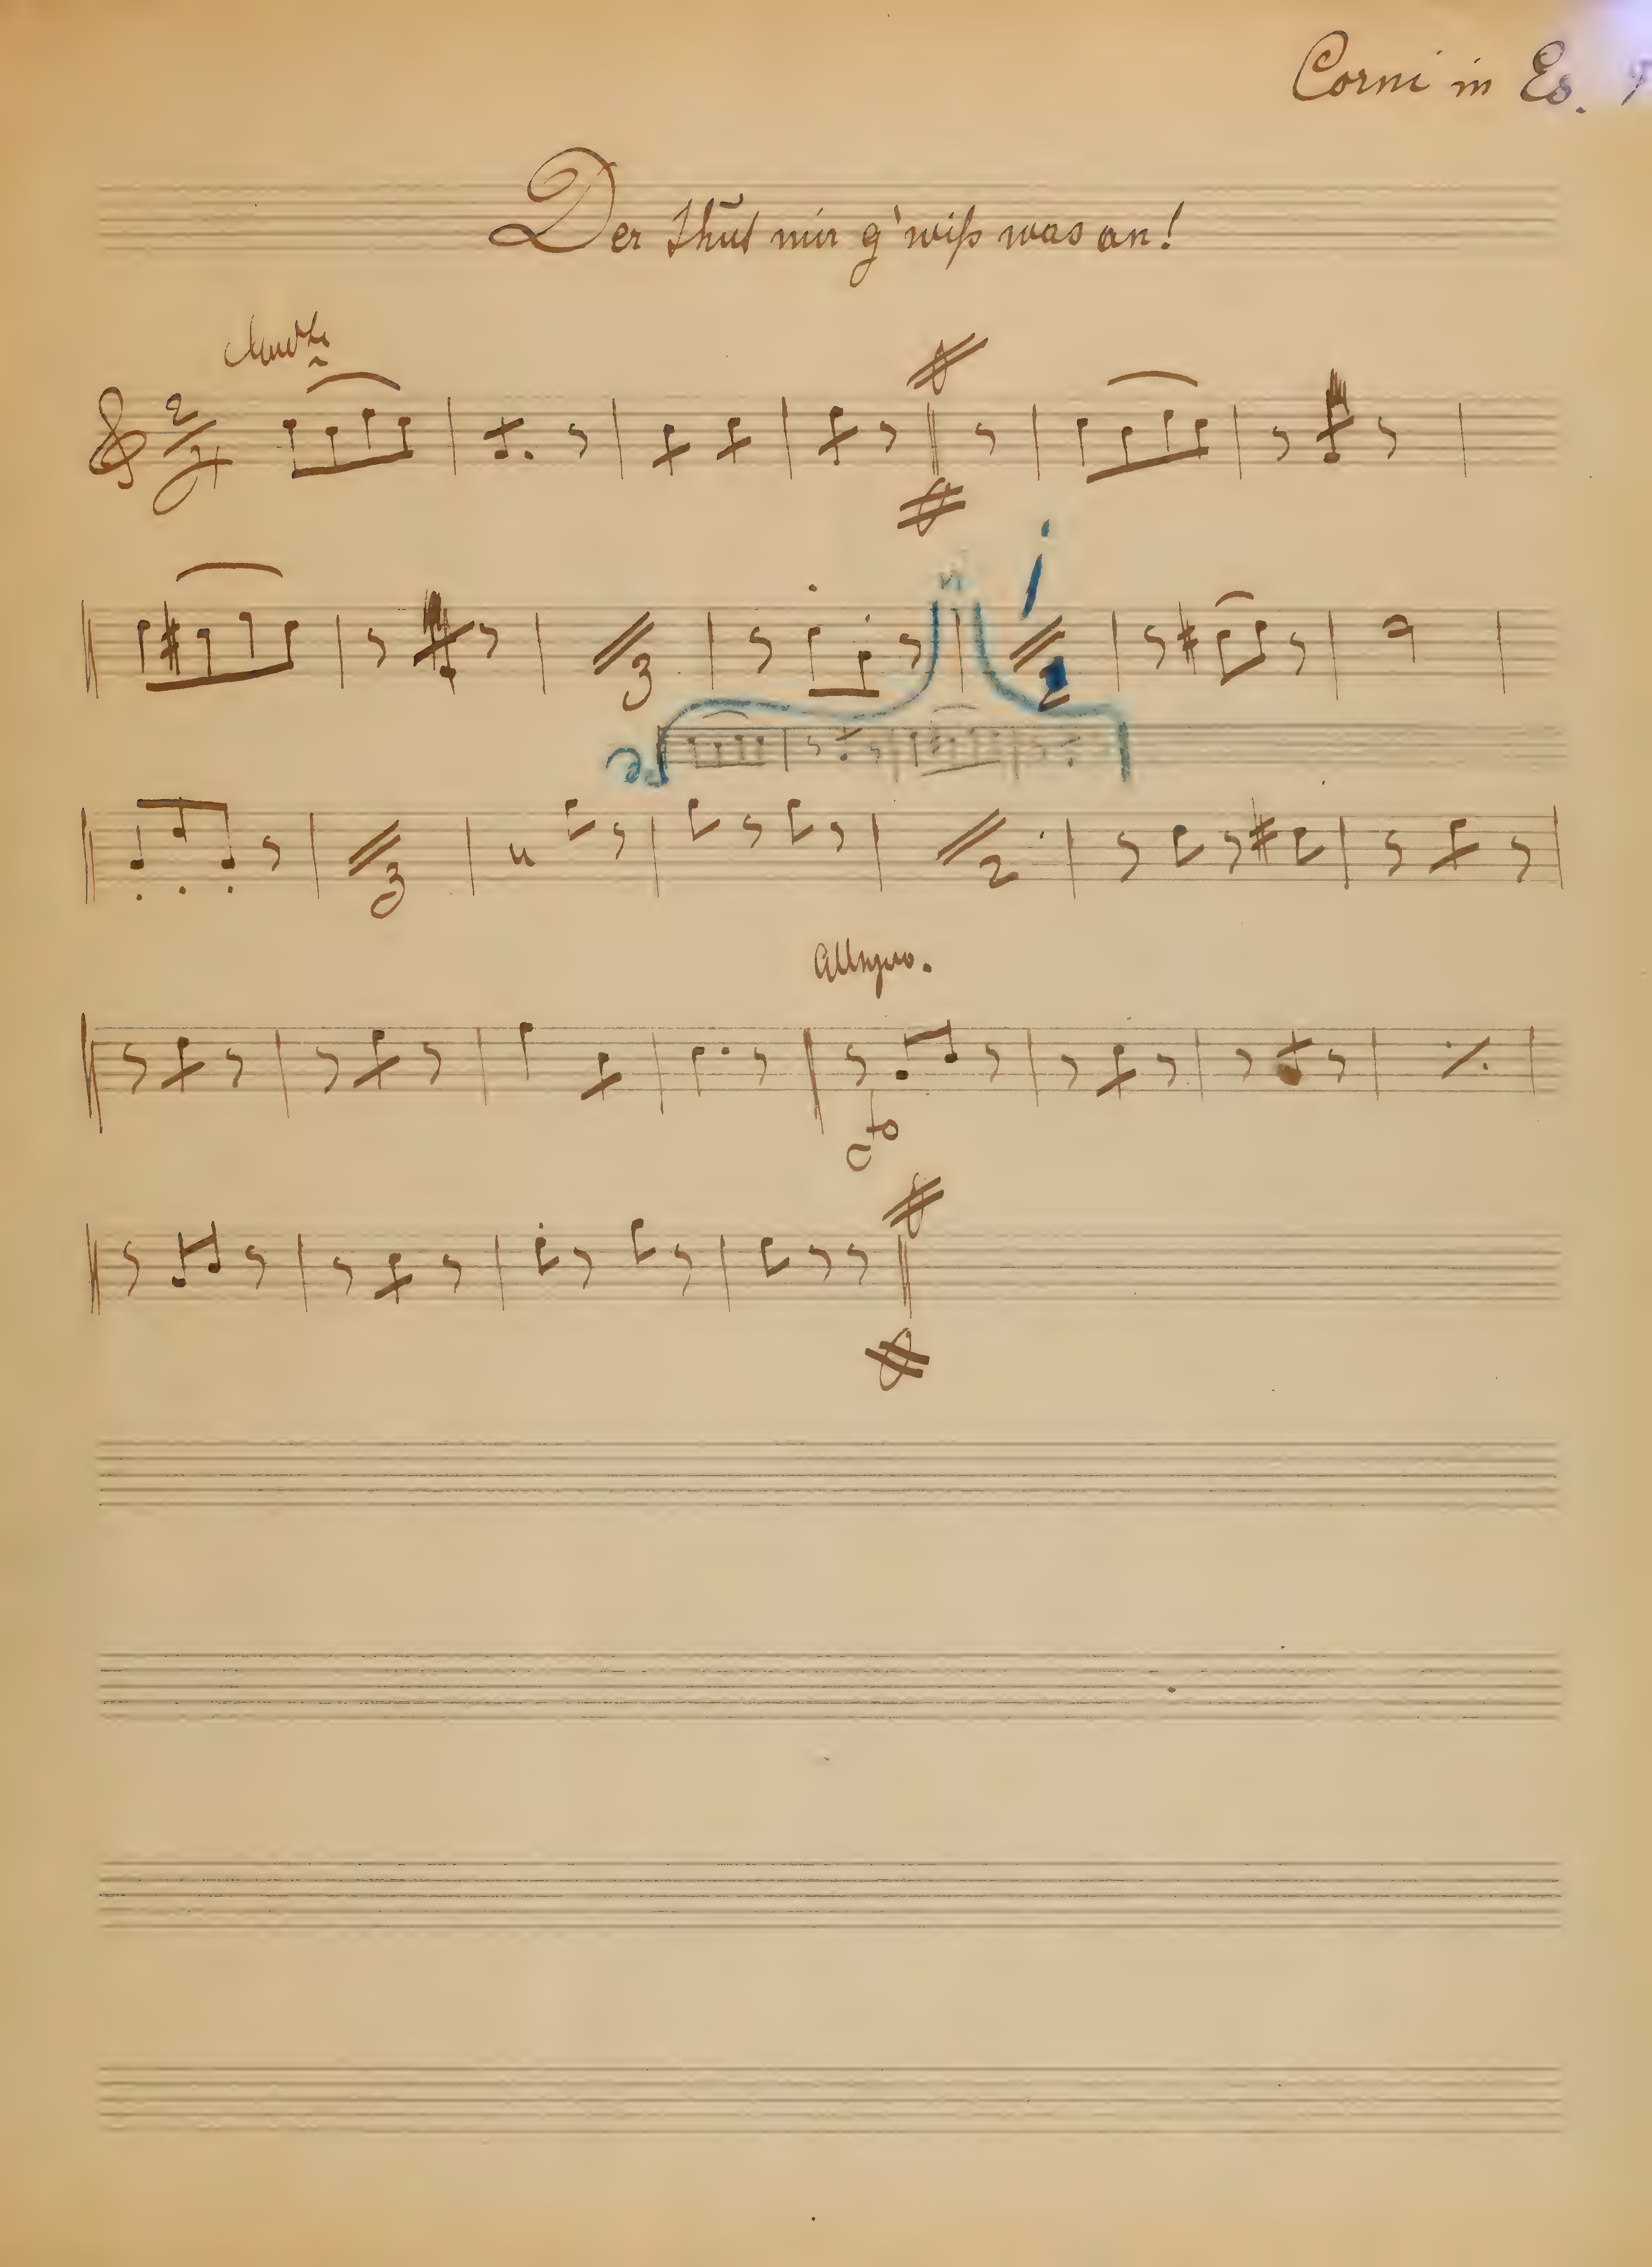 Corni in Es.
Der thut mir g'wiß was an!
Andte
2/4
3
2
3
2
Allegro.